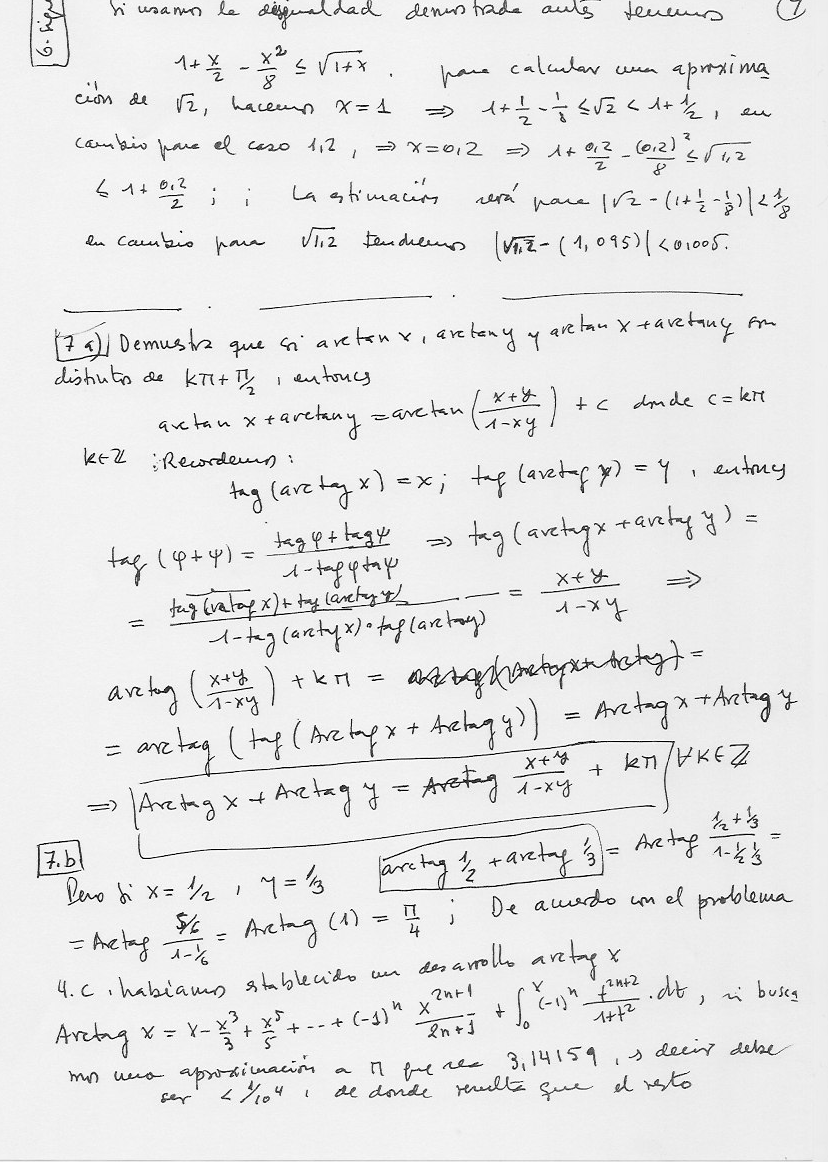 Si usamos la desigualdad demostrada antes tenemos 7
6. Sigu
1+x/2 - x²/8 ≤ √1+x . para calcular una aproxima
ción de √2, hacemos x=1 ⇒ 1+1/2-1/8 ≤√2 < 1+1/2, en
cambio para el caso 1,2, ⇒ x=0,2 ⇒ 1+0,2/2-(0,2)²/8 ≤√1,2
≤ 1+0,2/2 ; ; La estimación será para |√2-(1+1/2-1/8)|<1/8
en cambio para √1,2 tendremos |√1,2-(1,095)|<0,005.
7a) Demuestra que si arctan x, arctan y y arctan x+arctan y son
distintos de kπ+π/2, entonces
arctan x+arctan y =arctan(x+y/1-xy) + c donde c=kπ
k∈ℤ ;Recordemos:
tag(arctag x)=x; tag(arctag y)=y, entonces
tag(φ+ψ)= tagφ+tagψ/1-tagφtagψ ⇒ tag(arctag x+arctag y)=
= tag(arctag x)+tag(arctag y)/1-tag(arctg x)·tag(arctag y) = x+y/1-xy ⇒
arctag(x+y/1-xy)+kπ = =
= arctag(tag(Arctag x+Arctag y)) = Arctag x+Arctag y
⇒ Arctag x+Arctag y = Arctag x+y/1-xy + kπ ∀k∈ℤ
7.b
Pero si x=1/2, y=1/3 arctag 1/2 + arctag 1/3 = Arctag 1/2+1/3/1-1/2 1/3 =
=Arctag 5/6/1-1/6 = Arctag(1) = π/4 ; De acuerdo con el problema
4.c, habíamos establecido un desarrollo arctag x
Arctag x = x-x³/3+x⁵/5+···+(-1)ⁿ x²ⁿ⁺¹/2n+1 + ∫₀ˣ(-1)ⁿ t²ⁿ⁺²/1+t² ·dt, si busca
mos una aproximación a π que sea 3,14159, es decir debe
ser < 1/10⁴, de donde resulta que el resto